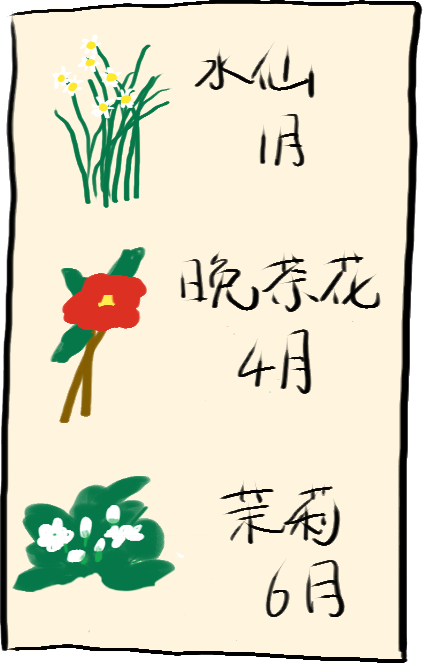 水仙
1月
晚茶花
4月
茉莉
6月